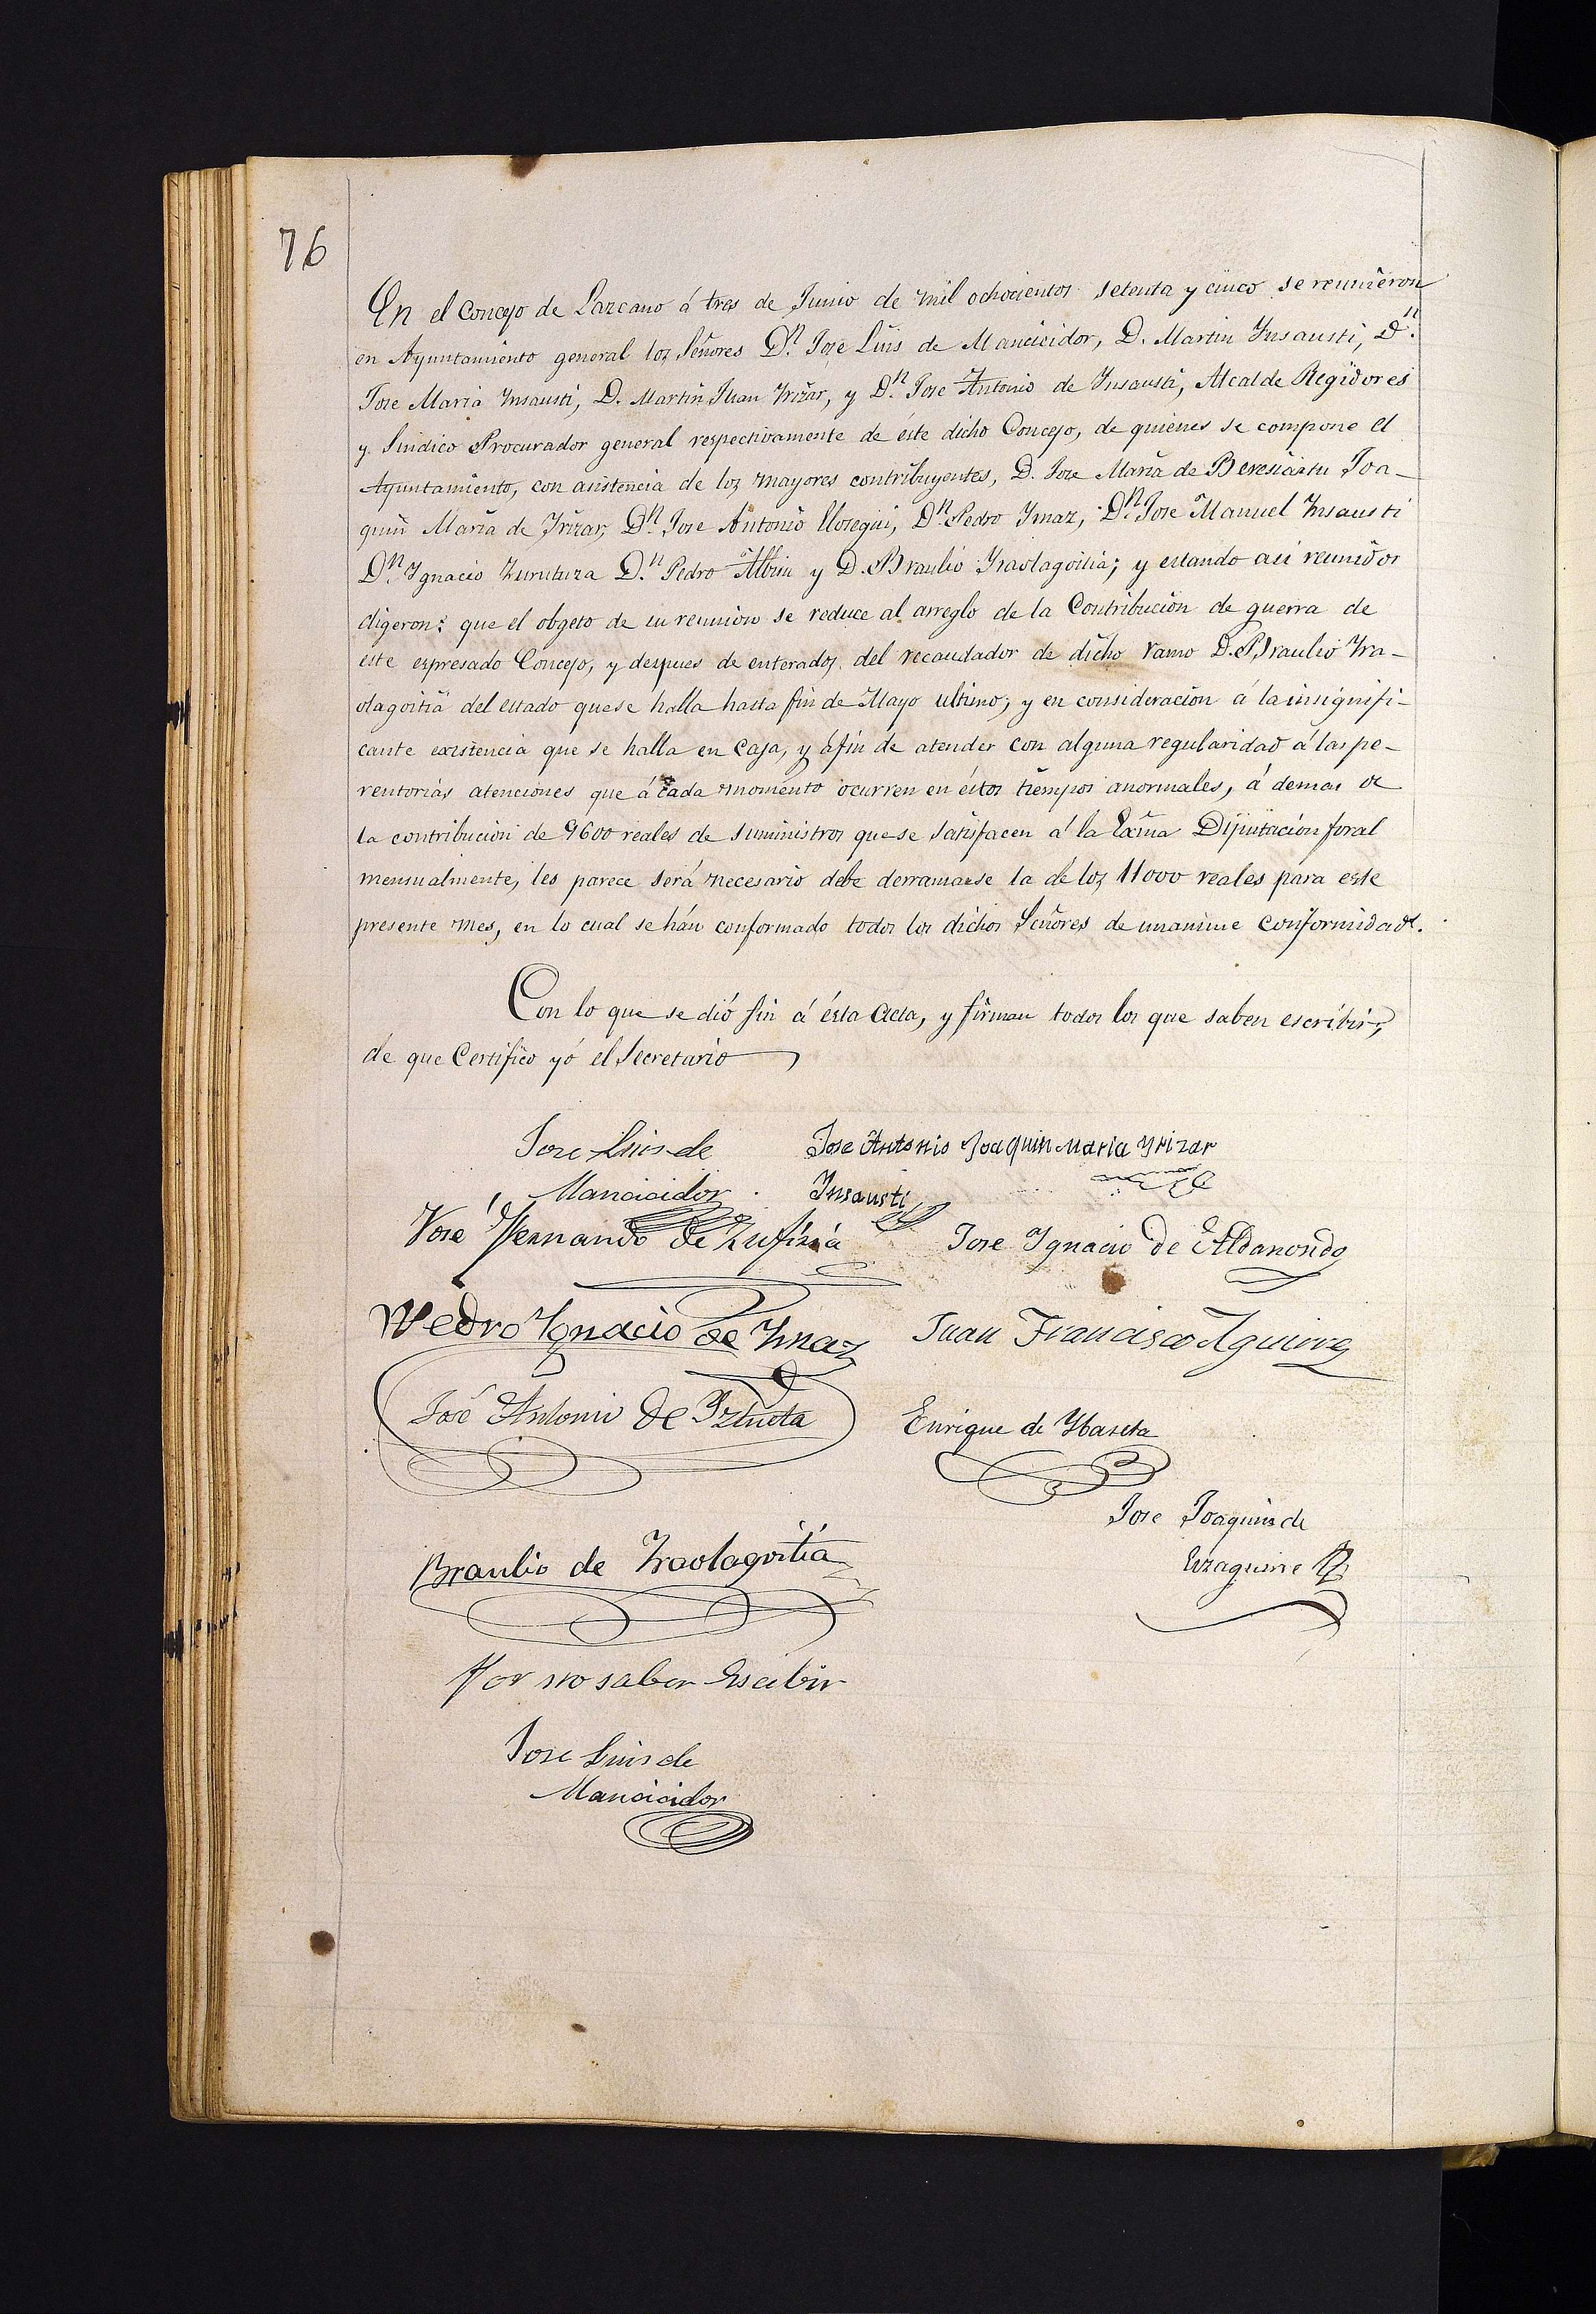 76
En el Concejo de Lazcano á tres de Junio de mil ochocientos setenta y cinco se reunieron
en Ayuntamiento general los Señores Dn. Jose Luis de Mancicidor, D. Martin Ynsausti, Dn.
Jose Maria Ynsausti, D. Martin Juan Yrizar, y Dn. Jose Antonio de Ynsausti, Alcalde Regidores
y Sindico Procurador general respectivamente de éste dicho Concejo, de quienes se compone el
Ayuntamiento, con asistencia de los mayores contribuyentes, D. Jose Maria de Beresiartu Joa-
quin Maria de Yrizar, Dn. Jose Antonio Elosegui, Dn. Pedro Ymaz, Dn. Jose Manuel Ynsausti
Dn. Ygnacio Zurutuza Dn. Pedro Albisu y D. Braulio Yraolagoitia; y estando asi reunidos
digeron: que el obgeto de su reunion se reduce al arreglo de la Contribucion de guerra de
este espresado Concejo, y despues de enterados del recaudador de dicho ramo D. Braulio Yra-
olagoitia del estado que se halla hasta fin de Mayo ultimo; y en consideracion á la insignifi-
cante existencia que se halla en Caja, y áfin de atender con alguna regularidad á las pe-
rentorias atenciones que á cada momento ocurren en éstos tiempos anormales, á demas de
la contribucion de 9600 reales de suministros que se satisfacen á la Exma Diputacion foral
mensualmente, les parece será necesario debe derramarse la de los 11000 reales para este
presente mes, en lo cual se hán conformado todos los dichos Señores de unanime conformidad.
Con lo que se dió fin á ésta Acta, y firman todos los que saben escribir,
de que Certifico yó el Secretario
Jose Luis de
Mancicidor
Jose Antonio
Ynsausti
Joaquin Maria Yrizar
José Fernando de Zufiria
Jose Ygnacio de Aldanondo
Pedro Ygnacio de Ymaz
Juan Francisco Aguirre
José Antonio de Yztueta
Enrique de Ybaseta
Jose Joaquin de
Eyzaguirre
Braulio de Yraolagoitia
Por no saber Escibir
Jose Luis de
Mancicidor